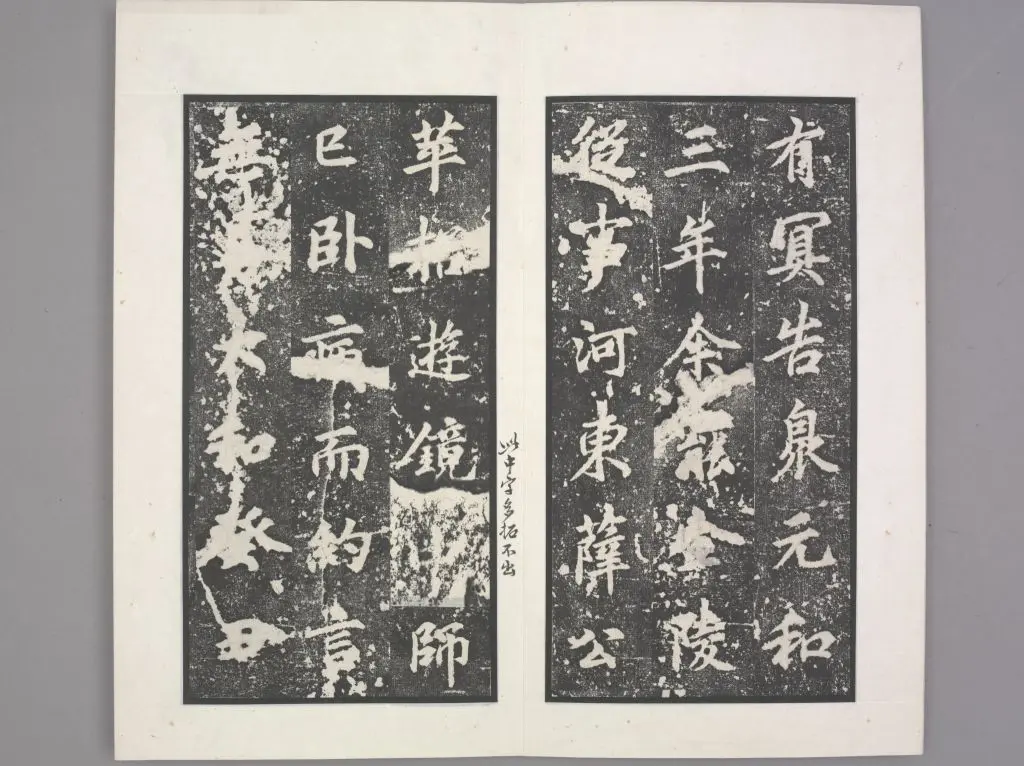 有冥告臮元和
三年余罷金陵
從事河東薛公
此中字多拓不出
苹招遊鏡師
已卧病而約言
無大和癸丑